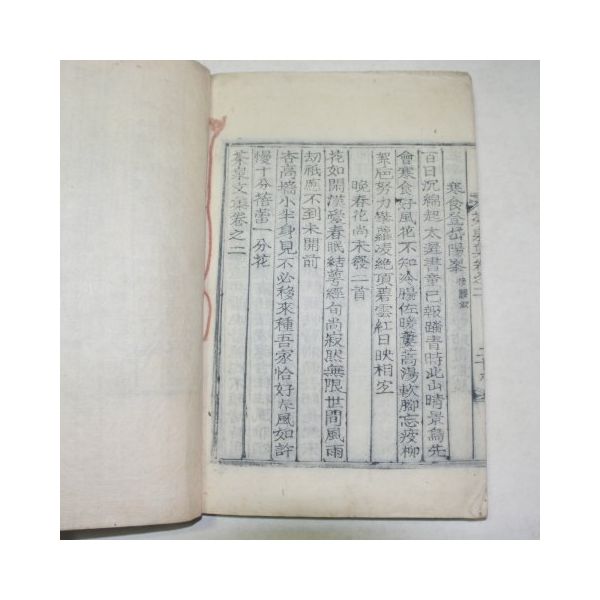 寒食登岳陽峯
百日沉綿起太遲書童已報踏靑時此山晴景爲先
會寒食好風花不知冷腸佐暖蔞蒿湯軟脚忘疲柳
絮巵努力攀蘿凌絶頂碧雲紅日映相宜
晩春花尚未發二首
花如開漢瀅春眠結萼經旬尚寂然無限世間風雨
劫祇應不到未開前
杏高墻小半身見不必移來種吾家恰好岸風如許
慢十分蓓蕾一分花
文集卷之二